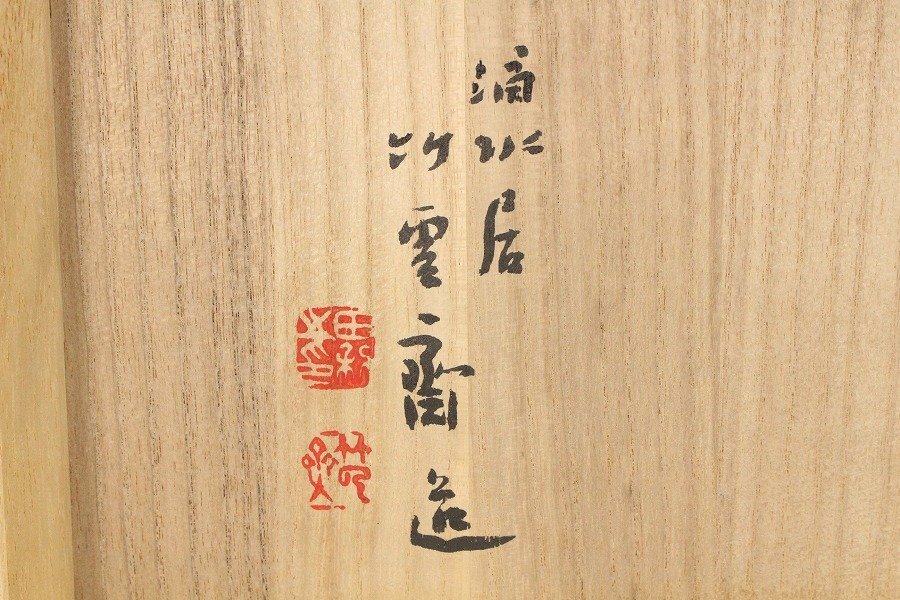 滴水居
竹雲斎造